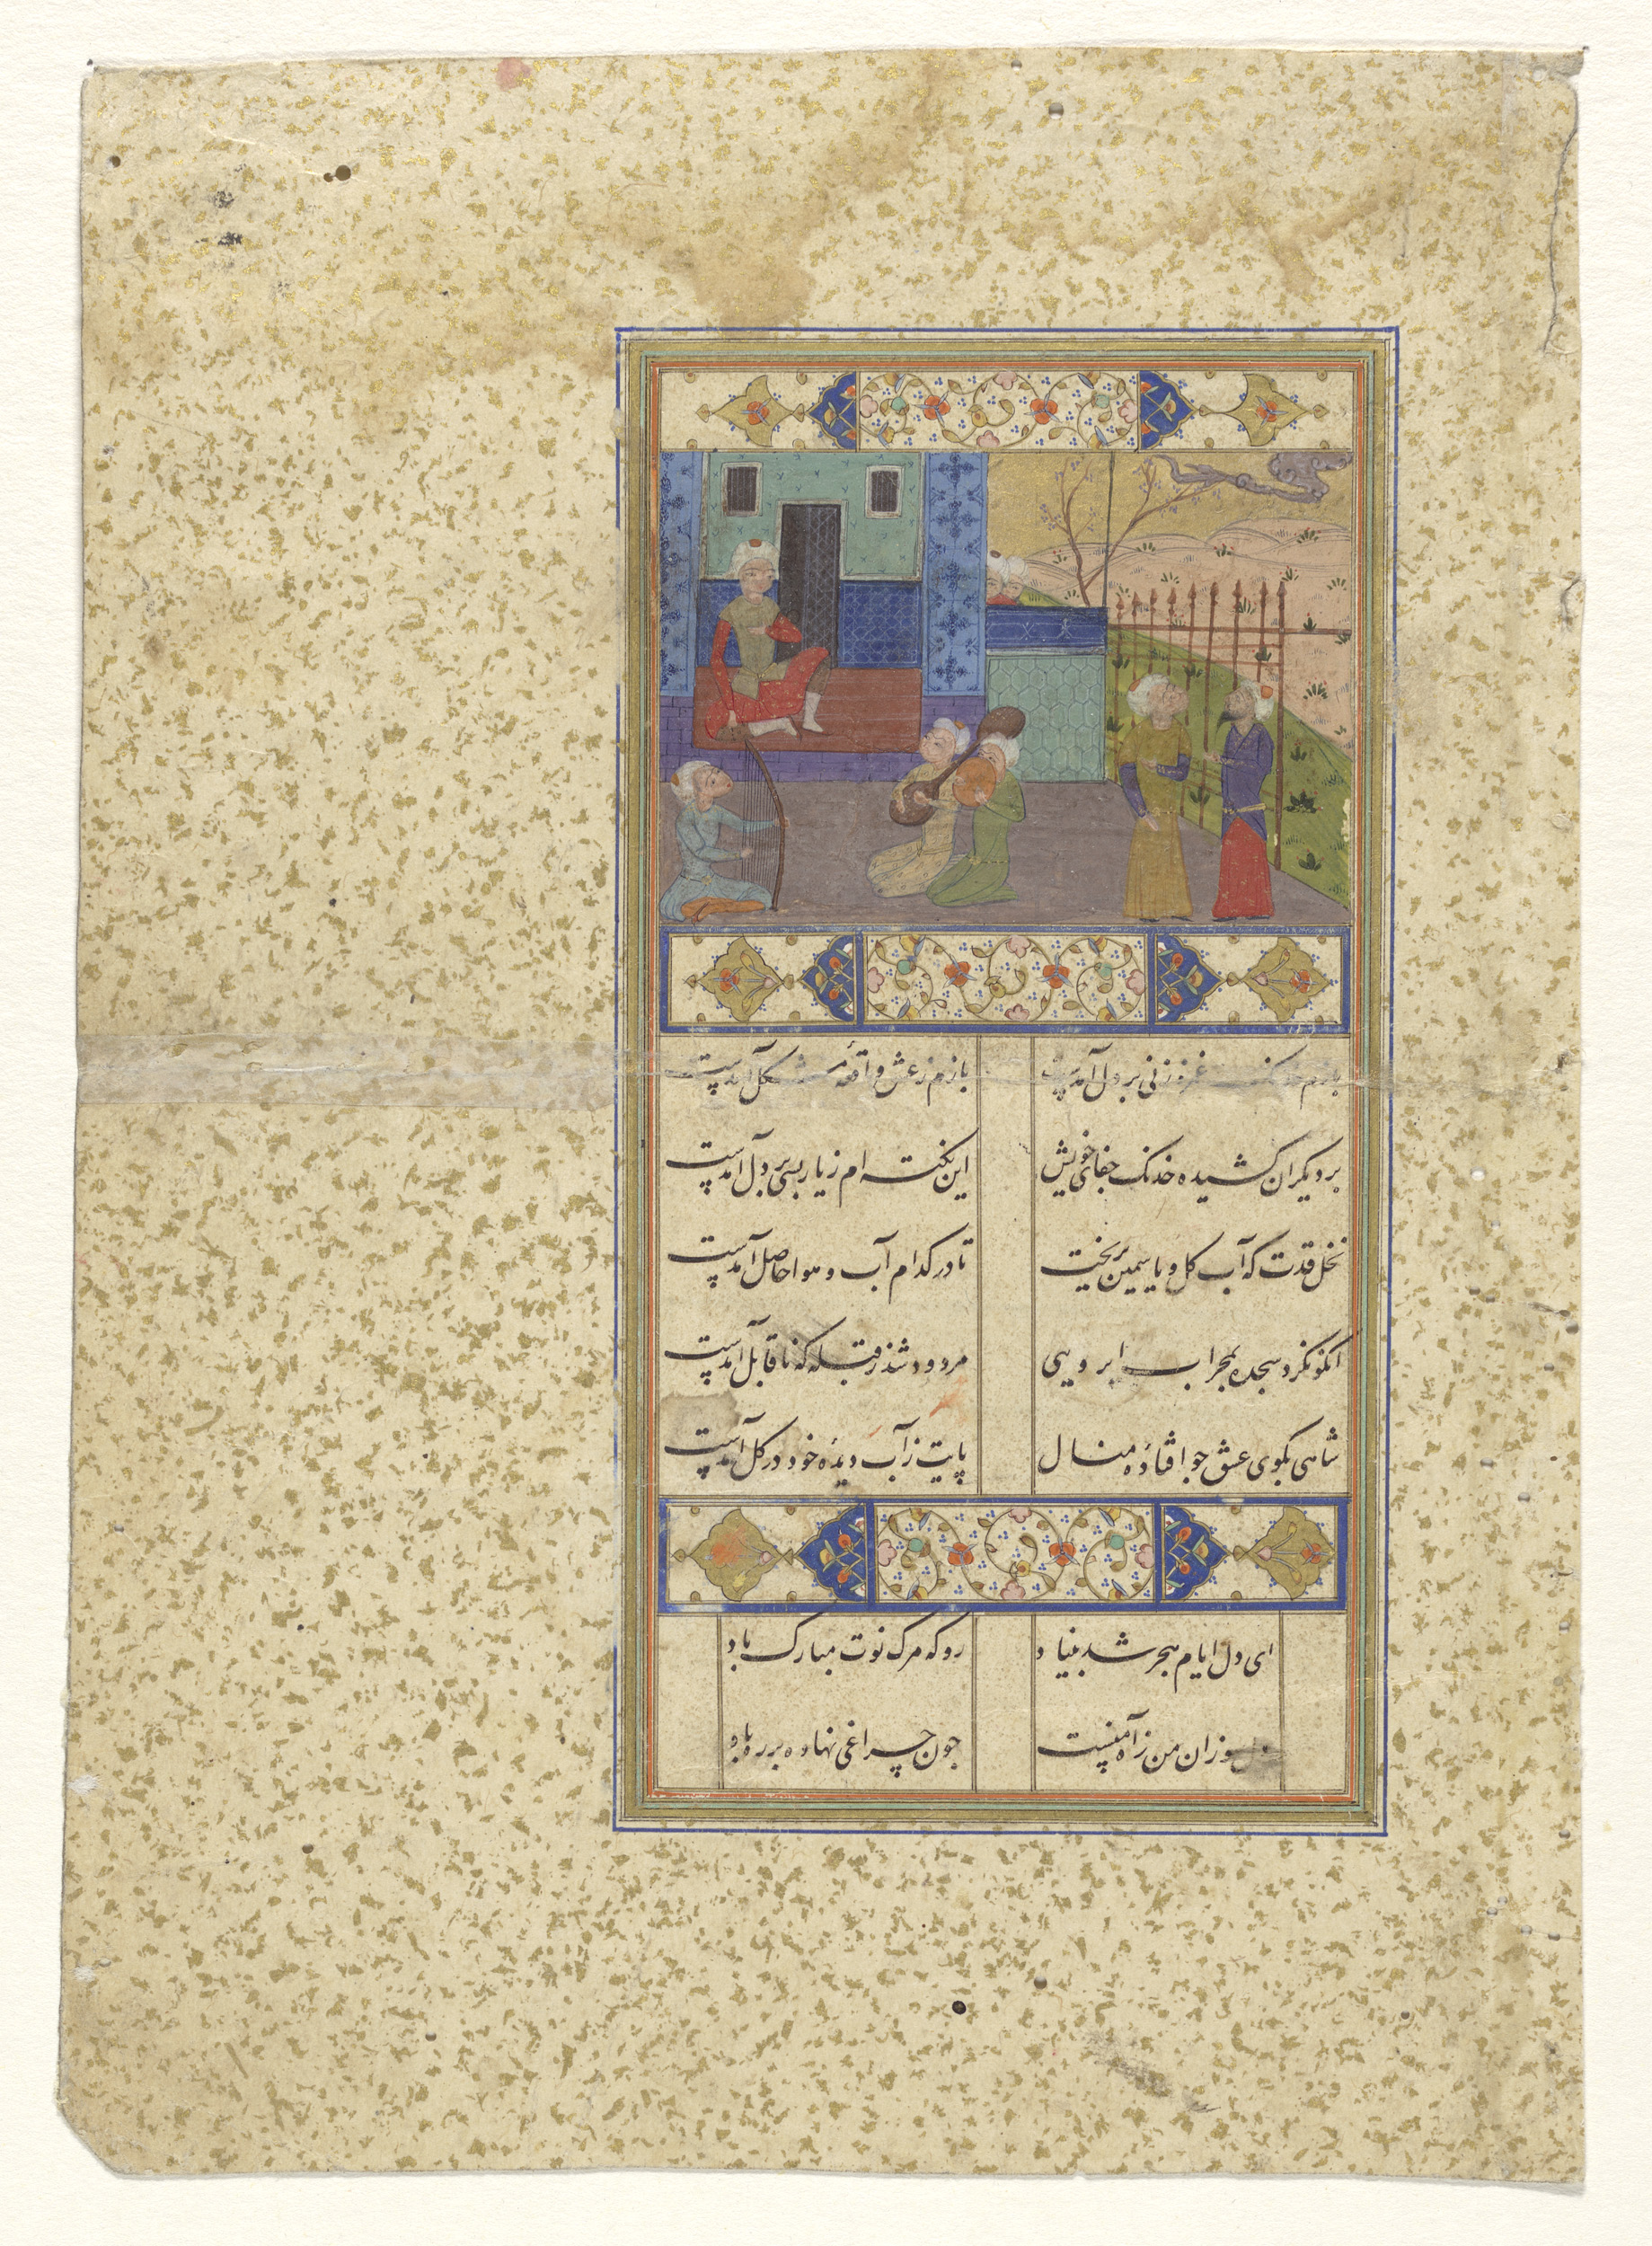 بازم خدنگ غمزه زنی بر دل آمدست بازم ز عشق واقعهٔ مشکل آمدست
بر دیکران کشیده خدنک جفای خویش این نکته ام ز یار بسی بر دل آمدست
نخل قدت که آب کل و یاسمین بریخت تا در کدام آب و هوا حاصل آمدست
آنکو نکرد سجده بمحراب ابرویی مردود شد ز قبله که ناقابل آمدست
شاهی بکوی عشق جو افتادهٔ منال پایت ز آب دیدهٔ خود در کل آمدست
ای دل ایام هجر شد بنیاد رو که مرک نوت مبارک باد
دل سوزان من ز آه منست چون چراغی نهاده بر ره باد